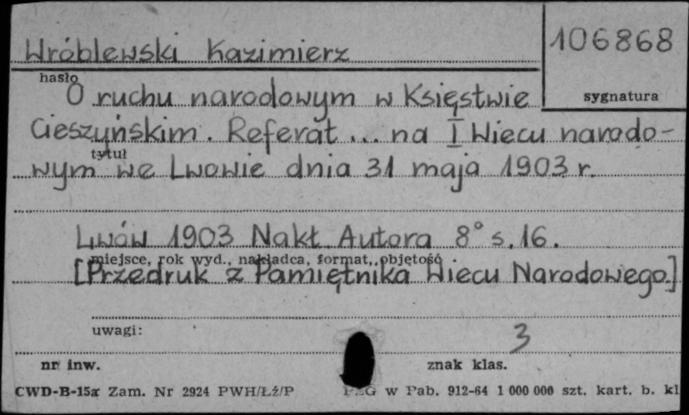 Wróblewski Kazimierz
106868
hasło
sygnatura
O ruchu narodowym w Księstwie
Cieszyńskim. Referat... na I Wiecu narodo-
tytuł
wym we Lwowie dnia 31 maja 1903 r.
Lwów 1903 Nakł. Autora 8° s. 16.
miejsce, rok wyd., nakładca, format, objętość
[Przedruk z Pamiętnika Wiecu Narodowego.]
uwagi:
3
nr inw.
znak klas.
CWD-B-15a Zam. Nr 2924 PWH/Łź/P
w Pab. 912-64 1 000 000 szt. kart. b. kl